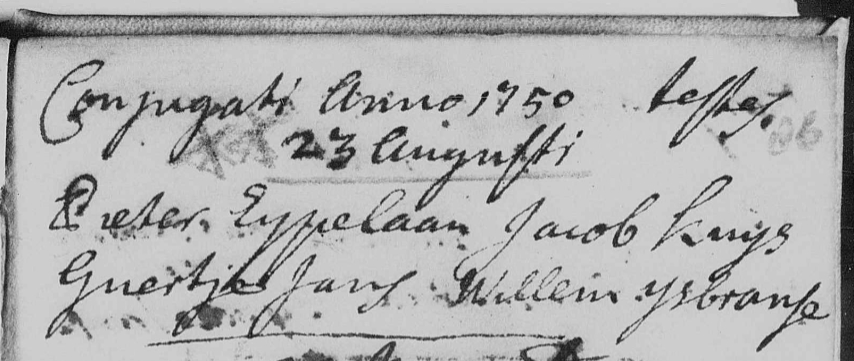 Conjugati Anno 1750 testes.
23 Augusti
Pieter Eyppelaan Jacob Kuys
Guertje Jans Willem ysbranse